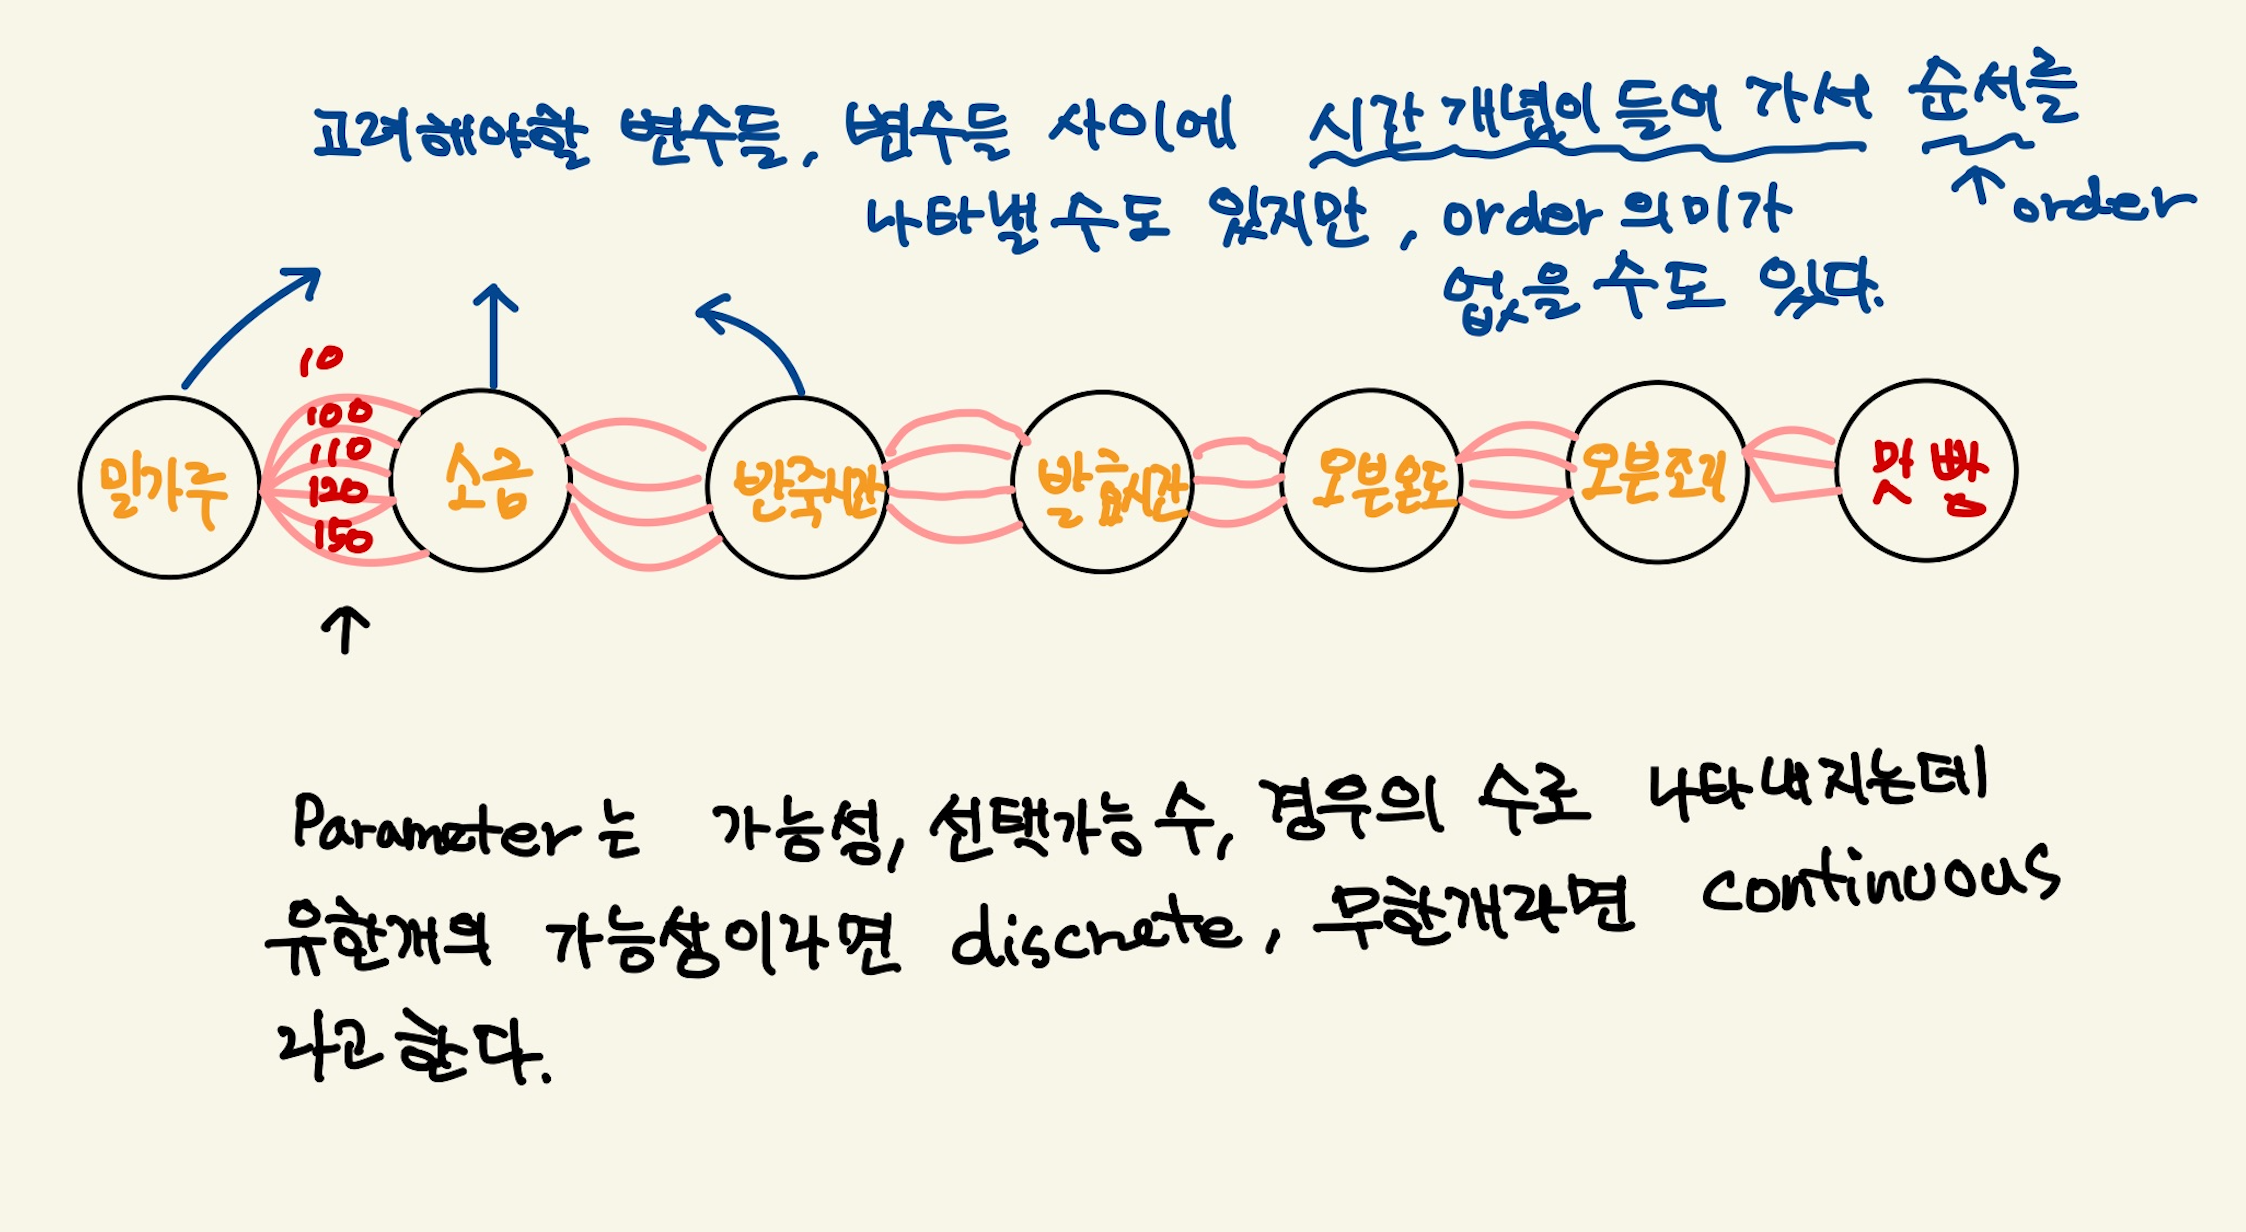 고려해야할 변수들, 변수들 사이에 시간 개념이 들어 가서 순서를
order
나타낼 수도 있지만, order 의미가
없을 수도 있다.
10
100
110
120
150
밀가루
소금
반죽시간
발효시간
오븐온도
오븐조리
맛 빵
Parameter는 가능성, 선택가능 수, 경우의 수로 나타내지는데
유한개의 가능성이라면 discrete, 무한개라면 continuous
라고 한다.